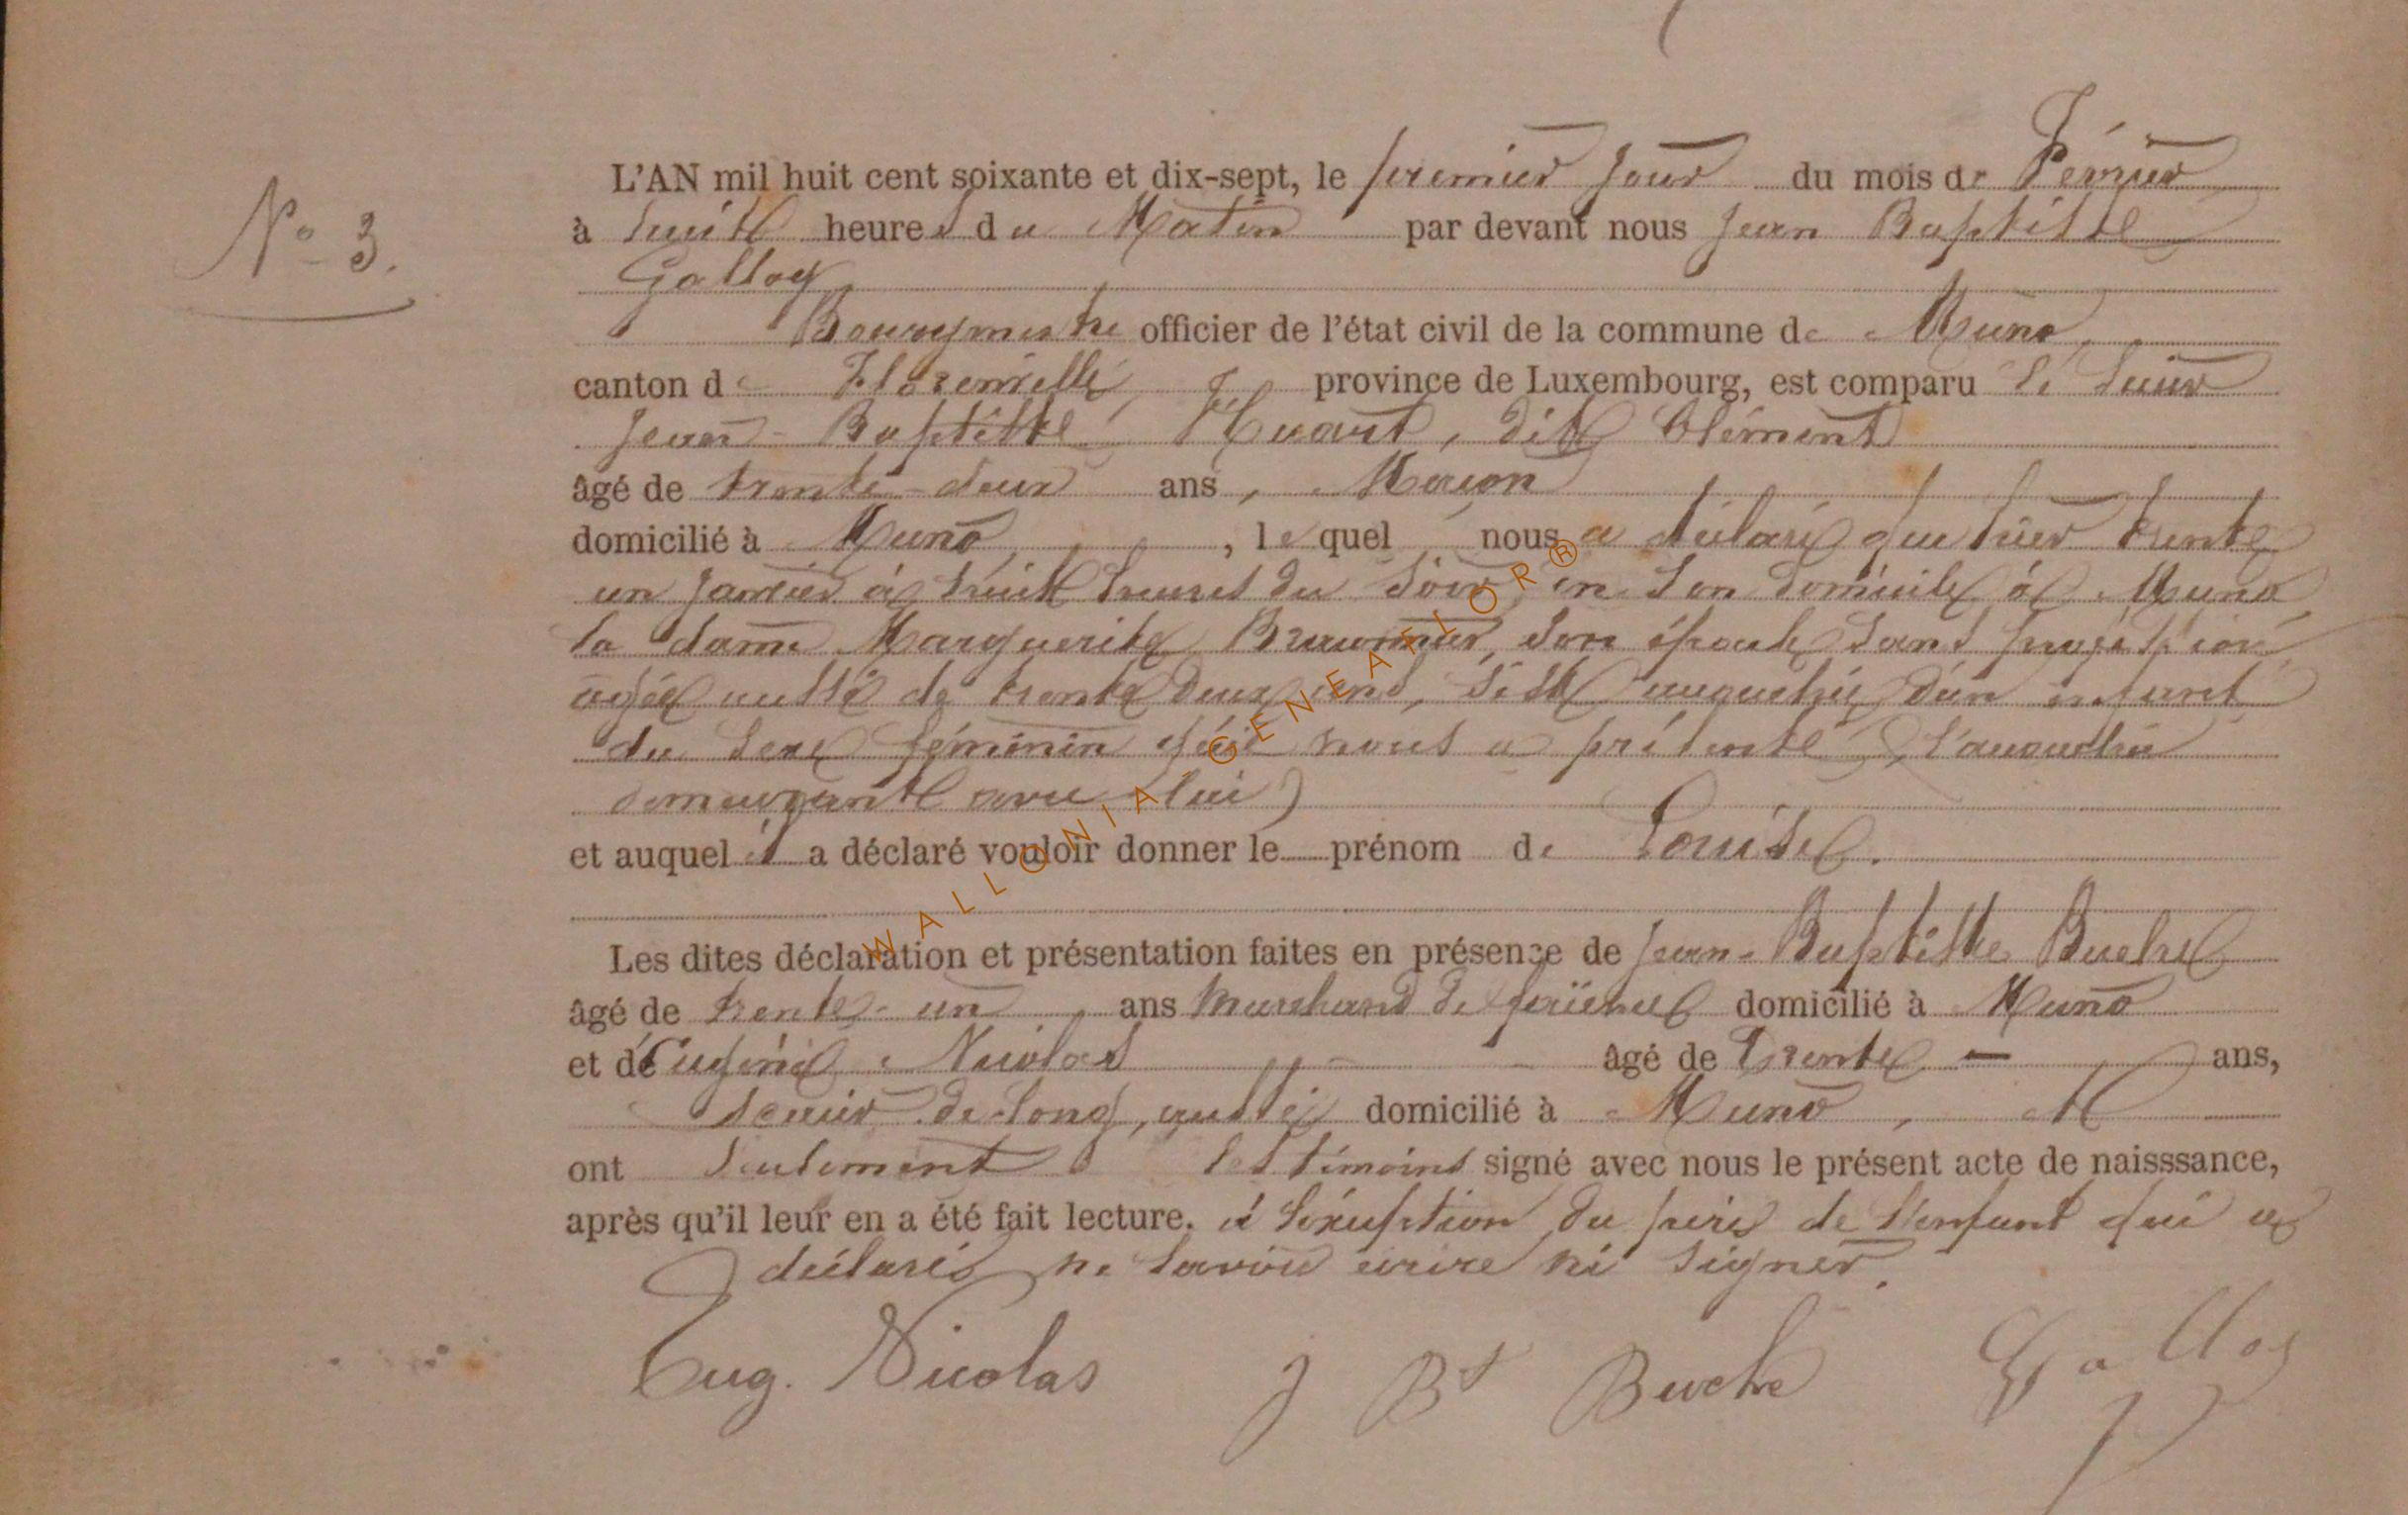 L'AN mil huit cent soixante et dix-sept, le premier jour du mois de Février
N° 3.
à huit heures du Matin par devant nous Jean Baptiste
Galloy
Bourgmestre officier de l'état civil de la commune de Muno,
canton de Florenville, province de Luxembourg, est comparu le sieur
Jean-Baptiste Huart, dit Clément
âgé de trente-deux ans, Maçon
domicilié à Muno, lequel nous a déclaré que hier trente
un janvier à huit heures du soir, en son domicile à Muno
la dame Marguerite son épouse sans profession,
agée aussi de trente deux ans, s'est accouchée d'un enfant
du sexe féminin qu'il nous a présenté, (l'accouchée
demeurant avec lui)
et auquel il a déclaré vouloir donner le prénom de Louise.
Les dites déclaration et présentation faites en présence de Jean-Baptiste Buche
âgé de trente-un ans Marchand de domicilié à Muno
et de Eugène Nicolas âgé de Trente — ans,
scieur de long, aussi domicilié à Muno, et
ont seulement les témoins signé avec nous le présent acte de naisssance,
après qu'il leur en a été fait lecture. à l'exception du père de l'enfant qui a
déclaré ne savoir écrire ni signer.
Eug. Nicolas J Bt Buche Galloy
WALLONIA GENEAFLOR®